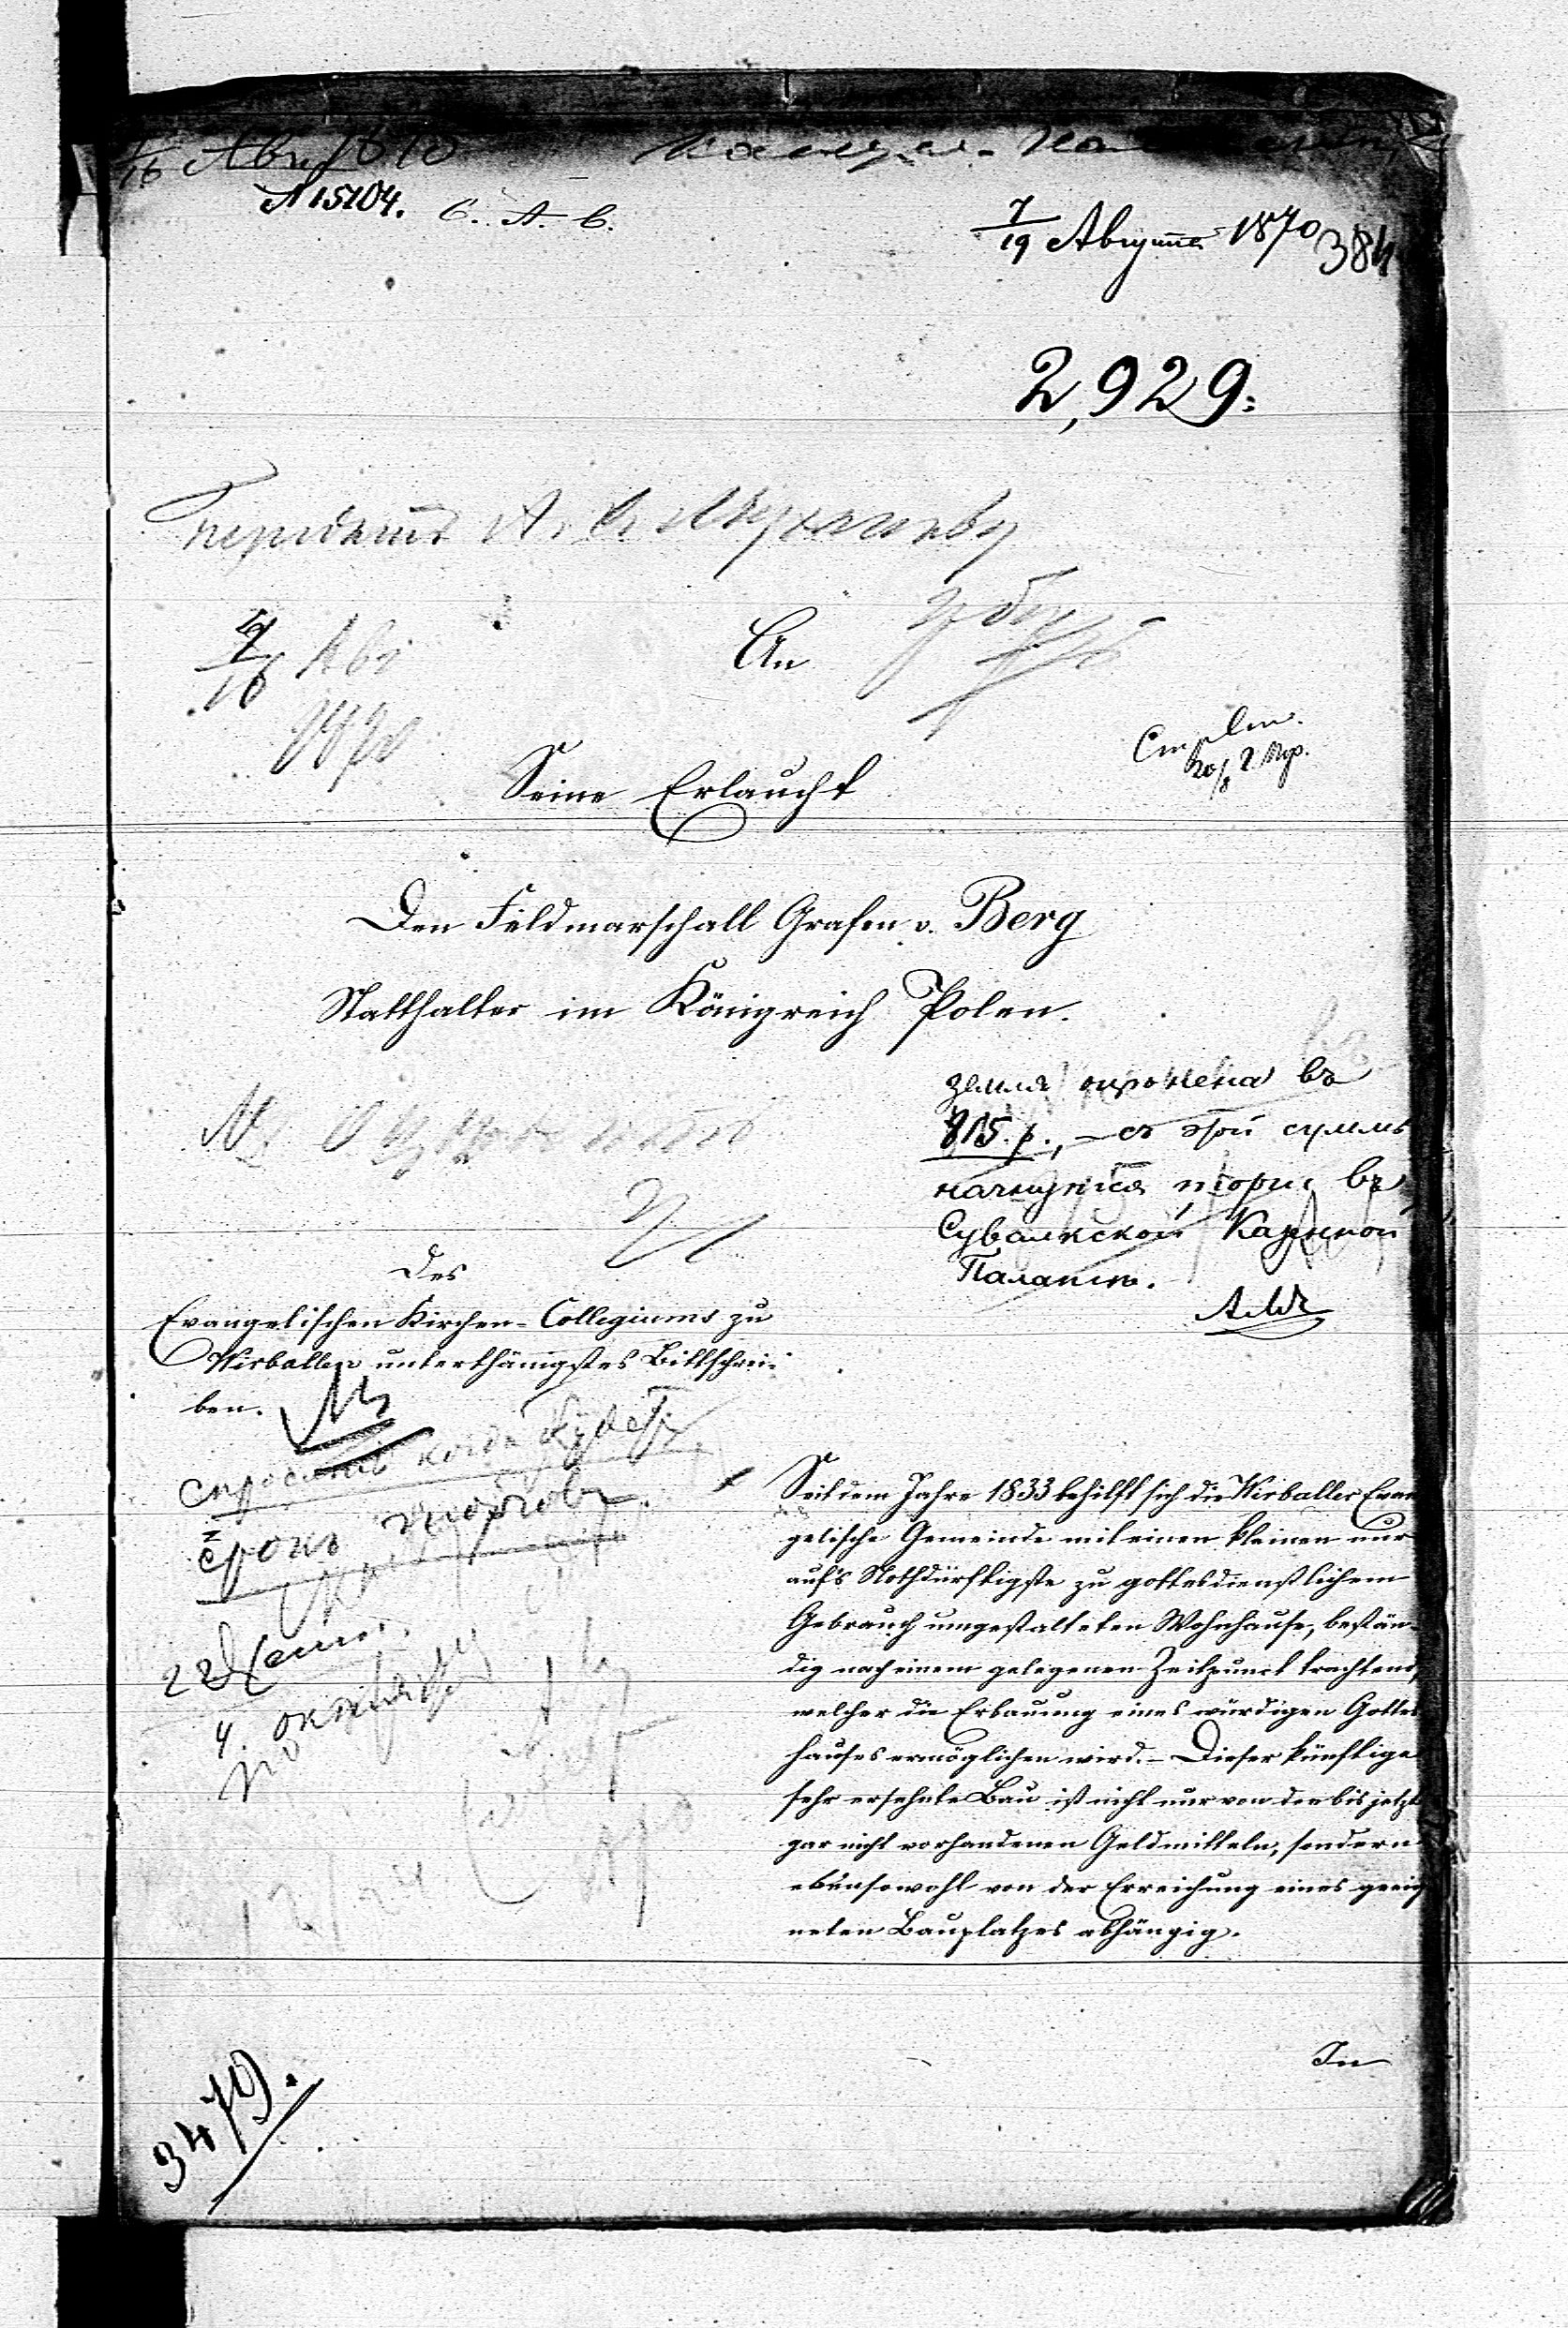 16 Авг 1870
N 15104. С. А. В.
7/19 Августа 1870
384
2,929.
Передать А. С.
4/16 Авг
1870
An
Seine Erlaucht
Den Feldmarschall Grafen v. Berg
Statthalter im Königreich Polen.
земля оценена въ
815 р., – съ этой суммы
начнутся торги въ
Сувалкской Казенной
Палате.
Des
Evangelischen Kirchen-Collegiums zu
Wirballen unterthänigstes Bittschrei-
ben.
спросить когда будетъ
срокъ торговъ.
22 Сент.
4. октября
Seit dem Jahre 1833 behilft sich die Wirballer Evan
gelische Gemeinde mit einen kleinen nur
auf's Nothdürftigste zu gottesdienstlichem
Gebrauch umgestalteten Wohnhause, bestän-
dig nach einem gelegenen Zeitpunct trachtend,
welcher die Erbauung eines würdigen Gottes
hauses ermöglichen wird. – Dieser künftige
sehr ersehnte Bau ist nicht nur von den bis jetzt
gar nicht vorhandenen Geldmitteln, sondern
ebensowohl von der Erreichung eines geeig
neten Bauplatzes abhängig.
In
3479.